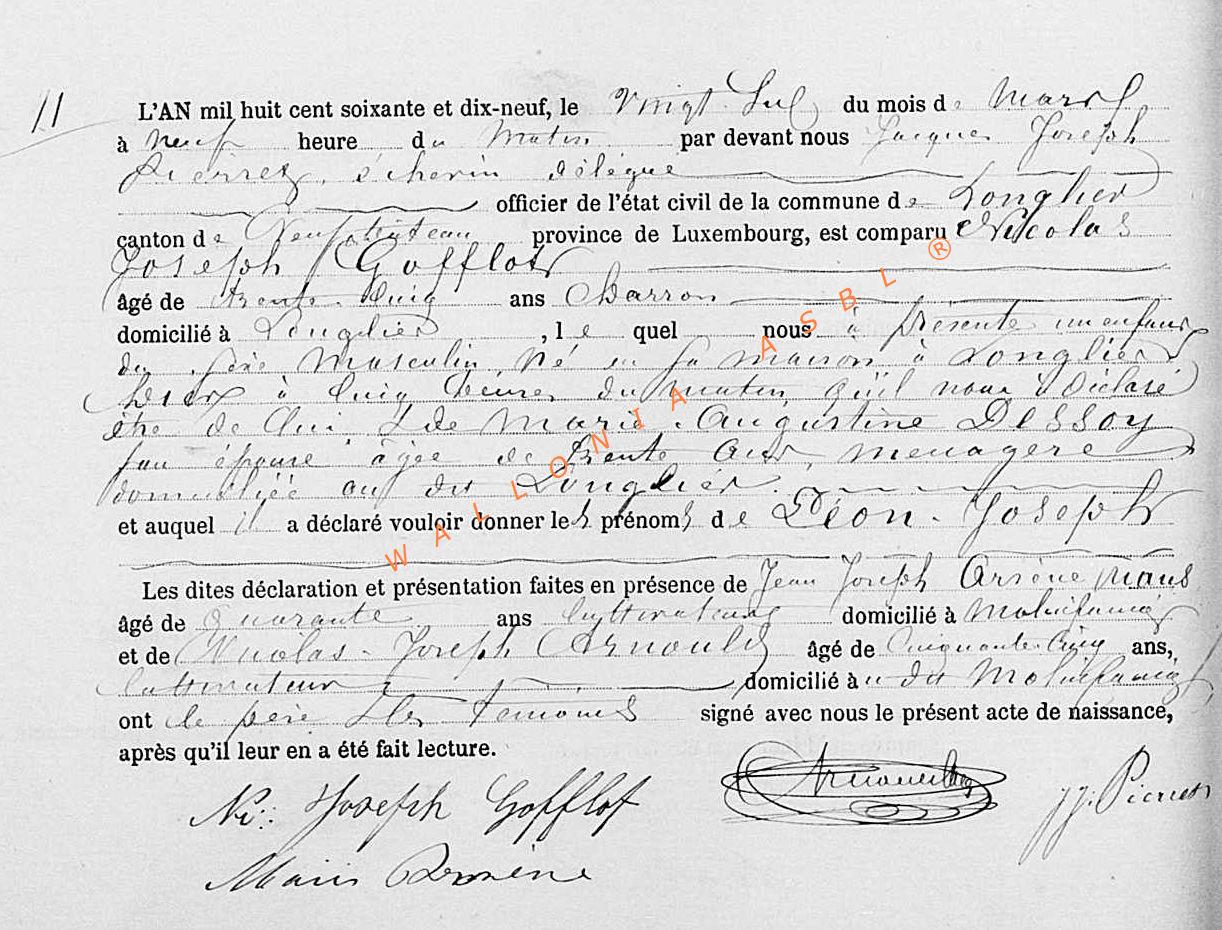 11
L'AN mil huit cent soixante et dix-neuf, le Vingt Sul du mois de Mars
à neuf heure du Matin par devant nous Jacques Joseph
Pierret, échevin délégué
officier de l'état civil de la commune de Longlier
canton de Neufchateau province de Luxembourg, est comparu Nicolas
Joseph Gofflot
âgé de trente cinq ans Charron
domicilié à Longlier, le quel nous à présenté un enfant
du sèxe Masculin, né en sa maison à Longlier
hier à cinq heures du matin, qu'il nous à déclaré
être de lui, & de Marie Augustine Dessoy
son épouse âgée de trente ans, ménagère
domiciliée au dit Longlier.
et auquel il a déclaré vouloir donner les prénoms de Léon Joseph
Les dites déclaration et présentation faites en présence de Jean Joseph Arsène Maus
âgé de quarante ans cultivateur domicilié à Molinfaing
et de Nicolas Joseph Arnould âgé de Cinquante Cinq ans,
cultivateur domicilié àu dit Molinfaing
ont le père & les témoins signé avec nous le présent acte de naissance,
après qu'il leur en a été fait lecture.
Ni: Joseph Gofflot
Arnould
JJ. Pierret
Arsène
WALLONIA ASBL ®